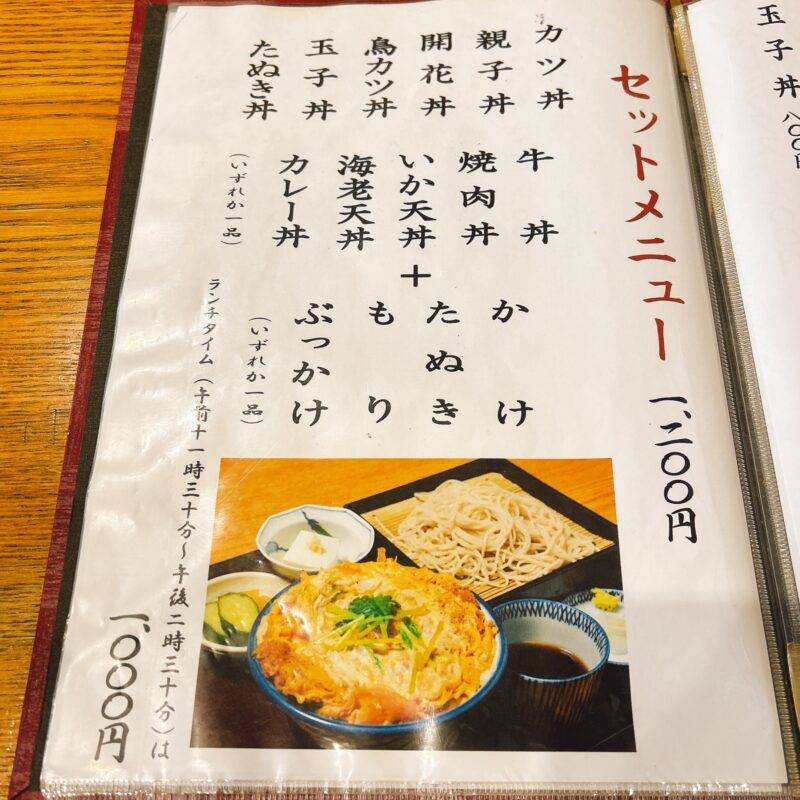 玉子丼 八〇〇円
セットメニュー 一、二〇〇円
カツ丼
親子丼
開花丼
鳥カツ丼
玉子丼
たぬき丼
牛丼
焼肉丼
いか天丼
海老天丼
カレー丼
(いずれか一品)
+
かけ
たぬき
もり
ぶっかけ
(いずれか一品)
ランチタイム(午前十一時三十分~午後二時三十分)は
一、〇〇〇円